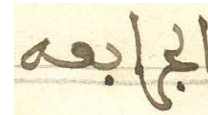 الجرابعه